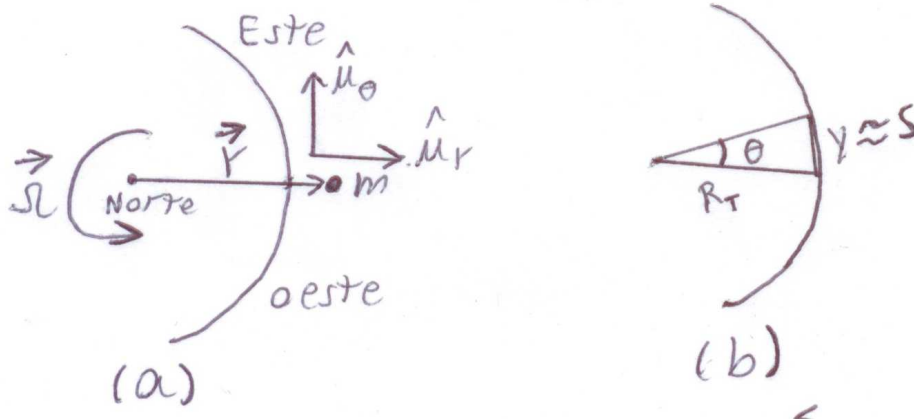 Este
û_θ
r⃗
û_r
Ω⃗
Norte
m
oeste
(a)
θ
y ≈ S
R_T
(b)